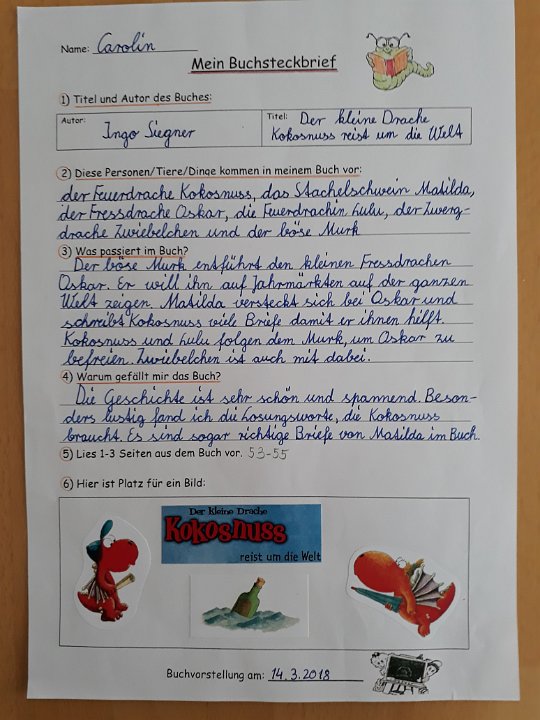 Name: Carolin
Mein Buchsteckbrief
1) Titel und Autor des Buches:
Autor: Ingo Siegner
Titel: Der kleine Drache
Kokosnuss reist um die Welt
2) Diese Personen/Tiere/Dinge kommen in meinem Buch vor:
der Feuerdrache Kokosnuss, das Stachelschwein Matilda,
der Fressdrache Oskar, die Feuerdrachin Lulu, der Zwerg-
drache Zwiebelchen und der böse Murk
3) Was passiert im Buch?
Der böse Murk entführt den kleinen Fressdrachen
Oskar. Er will ihn auf Jahrmärkten auf der ganzen
Welt zeigen. Matilda versteckt sich bei Oskar und
schreibt Kokosnuss viele Briefe damit er ihnen hilft.
Kokosnuss und Lulu folgen dem Murk, um Oskar zu
befreien. Zwiebelchen ist auch mit dabei.
4) Warum gefällt mir das Buch?
Die Geschichte ist sehr schön und spannend. Beson-
ders lustig fand ich die Losungsworte, die Kokosnuss
braucht. Es sind sogar richtige Briefe von Matilda im Buch.
5) Lies 1-3 Seiten aus dem Buch vor. 53-55
6) Hier ist Platz für ein Bild:
Der kleine Drache
Kokosnuss
reist um die Welt
Buchvorstellung am: 14.3.2018